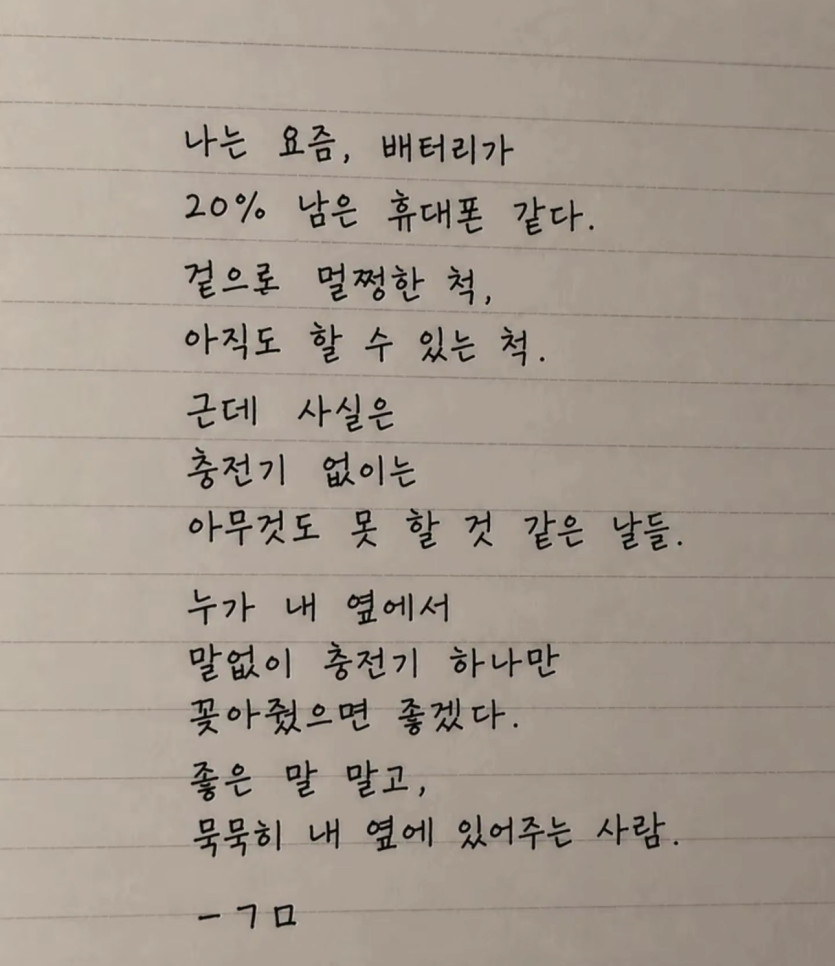 나는 요즘, 배터리가
20% 남은 휴대폰 같다.
겉으론 멀쩡한 척,
아직도 할 수 있는 척.
근데 사실은
충전기 없이는
아무것도 못 할 것 같은 날들.
누가 내 옆에서
말없이 충전기 하나만
꽂아줬으면 좋겠다.
좋은 말 말고,
묵묵히 내 옆에 있어주는 사람.
- ㄱㅁ